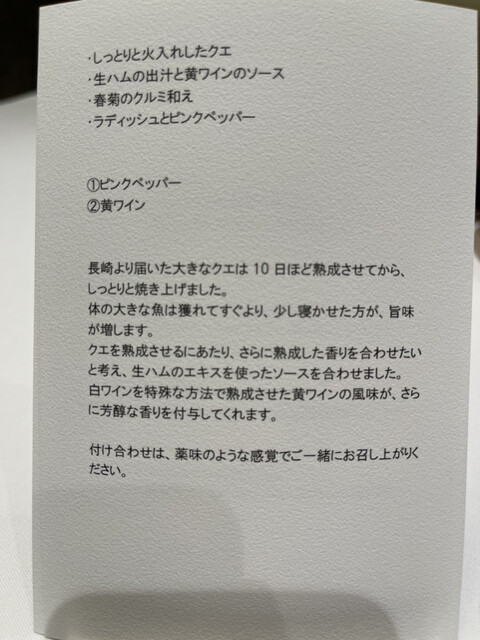 ・しっとりと火入れしたクエ
・生ハムの出汁と黄ワインのソース
・春菊のクルミ和え
・ラディッシュとピンクペッパー
①ピンクペッパー
②黄ワイン
長崎より届いた大きなクエは 10 日ほど熟成させてから、
しっとりと焼き上げました。
体の大きな魚は獲れてすぐより、少し寝かせた方が、旨味
が増します。
クエを熟成させるにあたり、さらに熟成した香りを合わせたい
と考え、生ハムのエキスを使ったソースを合わせました。
白ワインを特殊な方法で熟成させた黄ワインの風味が、さら
に芳醇な香りを付与してくれます。
付け合わせは、薬味のような感覚でご一緒にお召し上がりく
ださい。